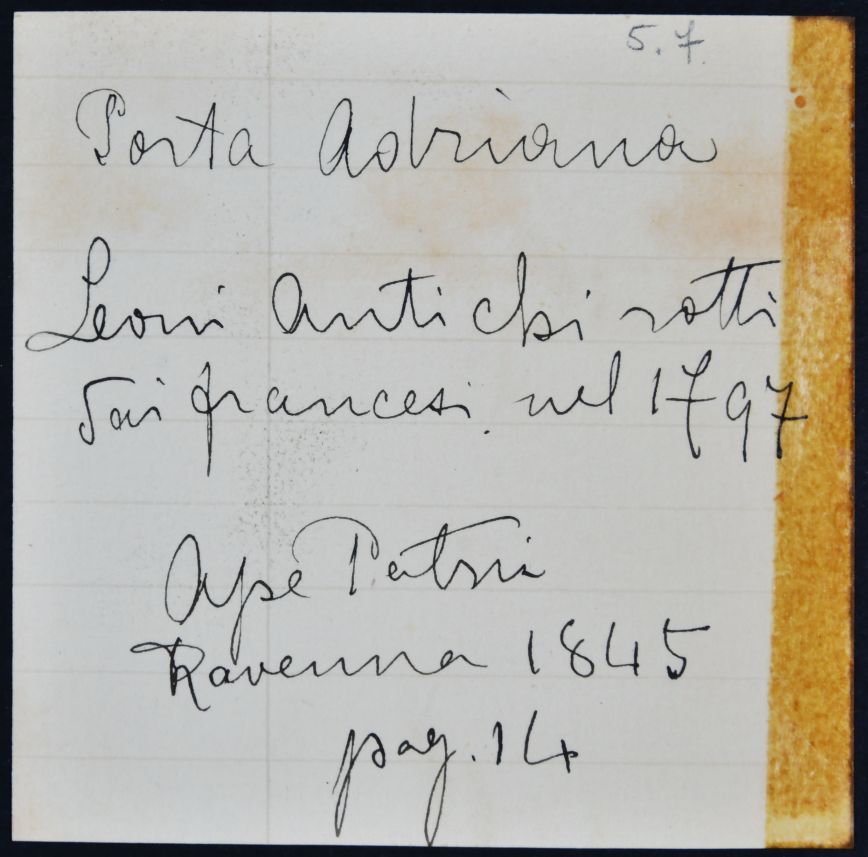 5.7
Porta Adriana
Leoni Antichi rotti
dai francesi nel 1797
Ape Patria
Ravenna 1845
pag. 14